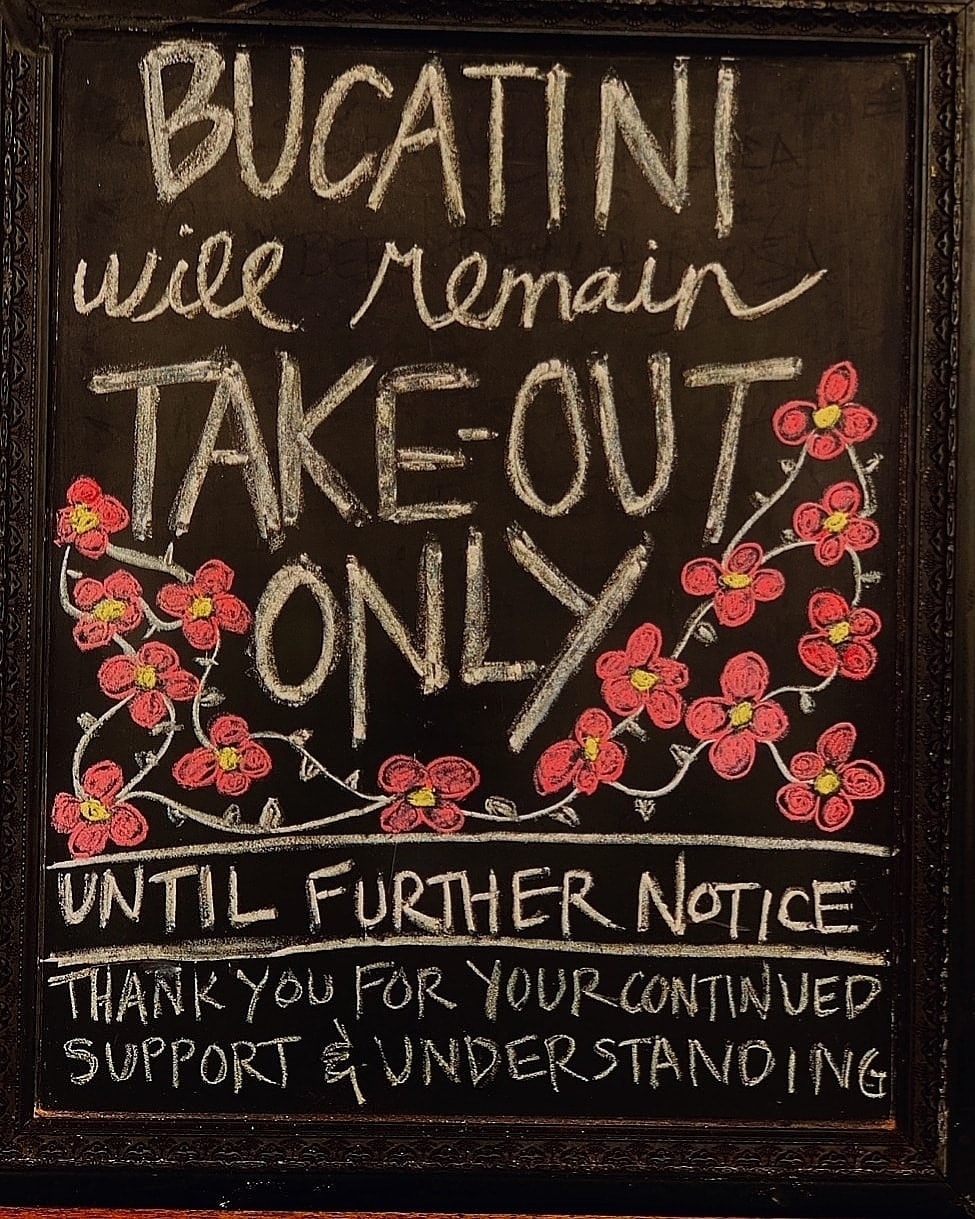 BUCATINI
will remain
TAKE-OUT
ONLY
UNTIL FURTHER NOTICE
THANK YOU FOR YOUR CONTINUED
SUPPORT & UNDERSTANDING